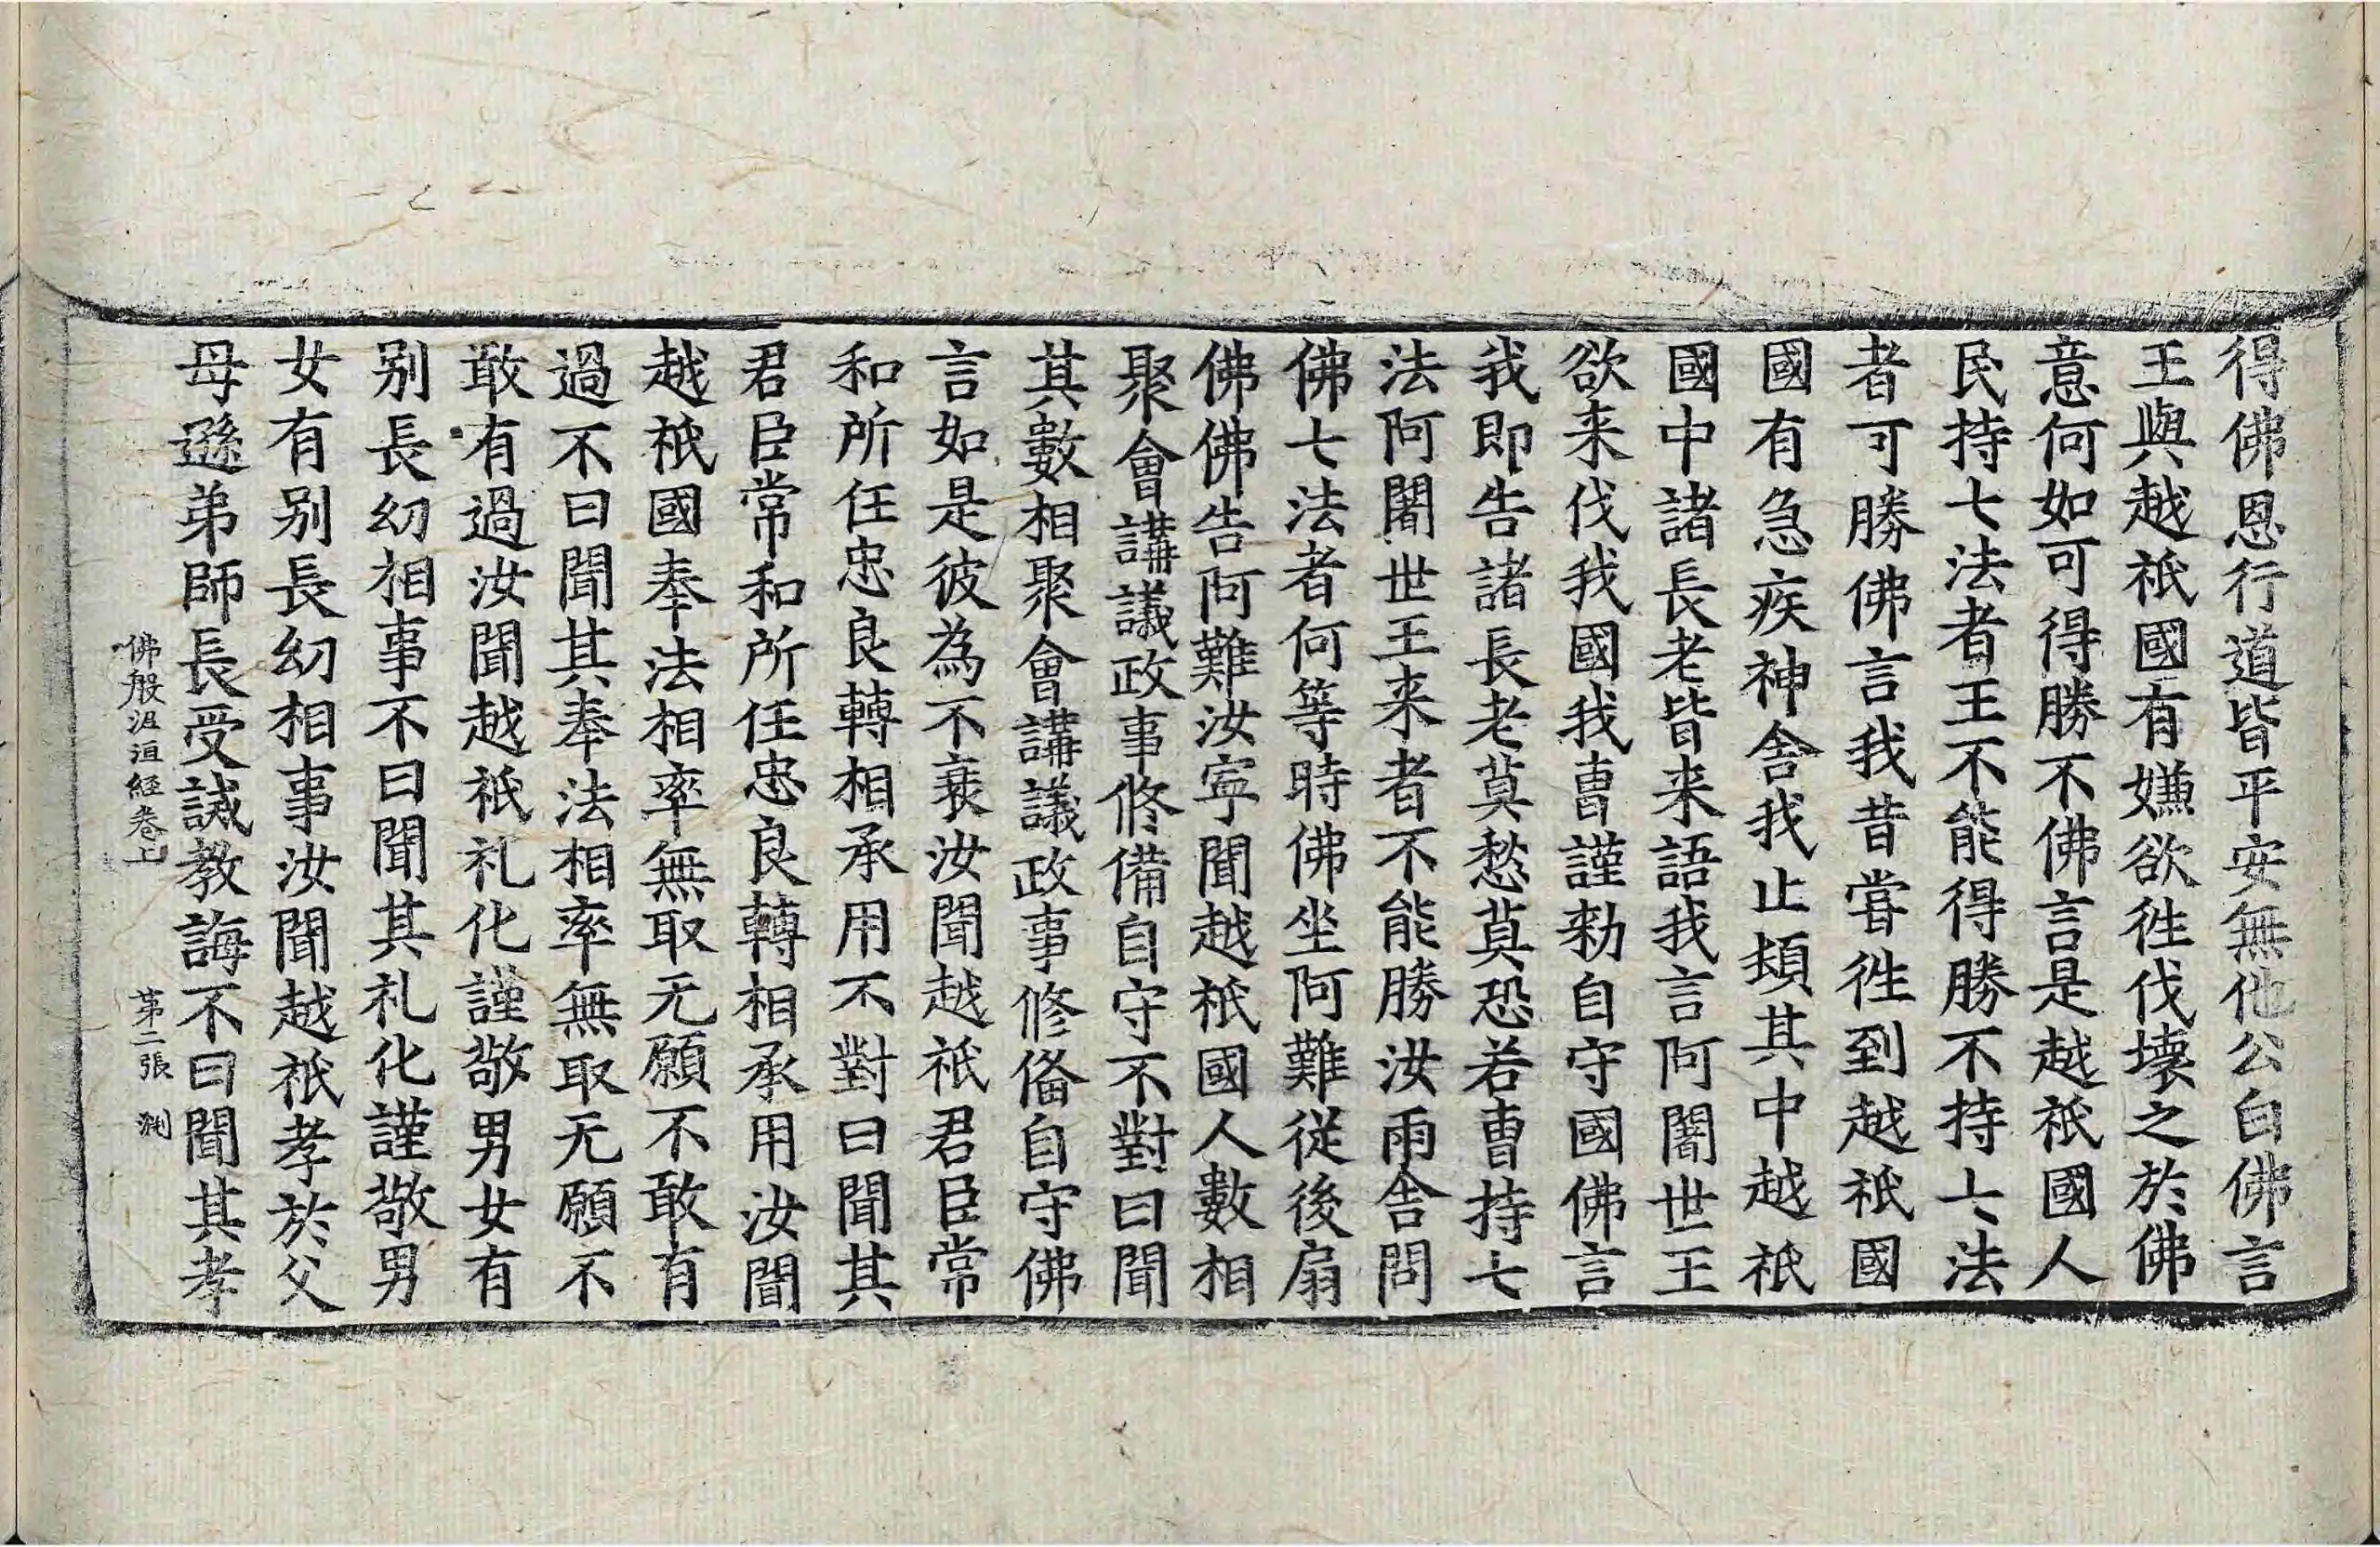 得佛恩行道皆平安無他公白佛言
王與越祇國有嫌欲徃伐壞之於佛
意何如可得勝不佛言是越祇國人
民持七法者王不能得勝不持七法
者可勝佛言我昔甞徃到越祇國
國有急疾神舍我止頓其中越祇
國中諸長老皆来語我言阿闍世王
欲来伐我國我曺謹勑自守國佛言
我即告諸長老莫愁莫恐若曺持七
法阿闍世王来者不能勝汝雨舍問
佛七法者何等時佛坐阿難從後扇
佛佛告阿難汝寧聞越祇國人數相
聚會講議政事修備自守不對曰聞
其數相聚會講議政事修俻自守佛
言如是彼為不衰汝聞越祇君臣常
和所任忠良轉相承用不對曰聞其
君臣常和所任忠良轉相承用汝聞
越祇國奉法相率無取无願不敢有
過不曰聞其奉法相率無取无願不
敢有過汝聞越祇礼化謹敬男女有
别長幼相事不曰聞其礼化謹敬男
女有别長幼相事汝聞越祇孝於父
母遜弟師長受誡教誨不曰聞其孝
佛般泥洹經卷上 第二張 渕